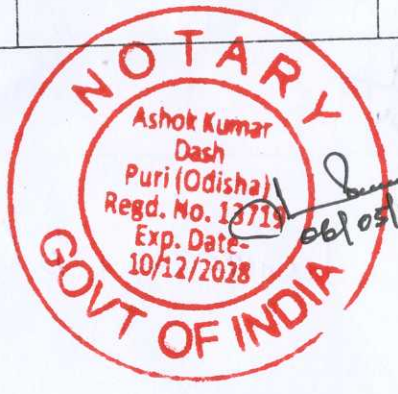 NOTARY
Ashok Kumar
Dash
Puri (Odisha)
Regd. No. 13719
Exp. Date-
10/12/2028
GOVT OF INDIA
06/05/